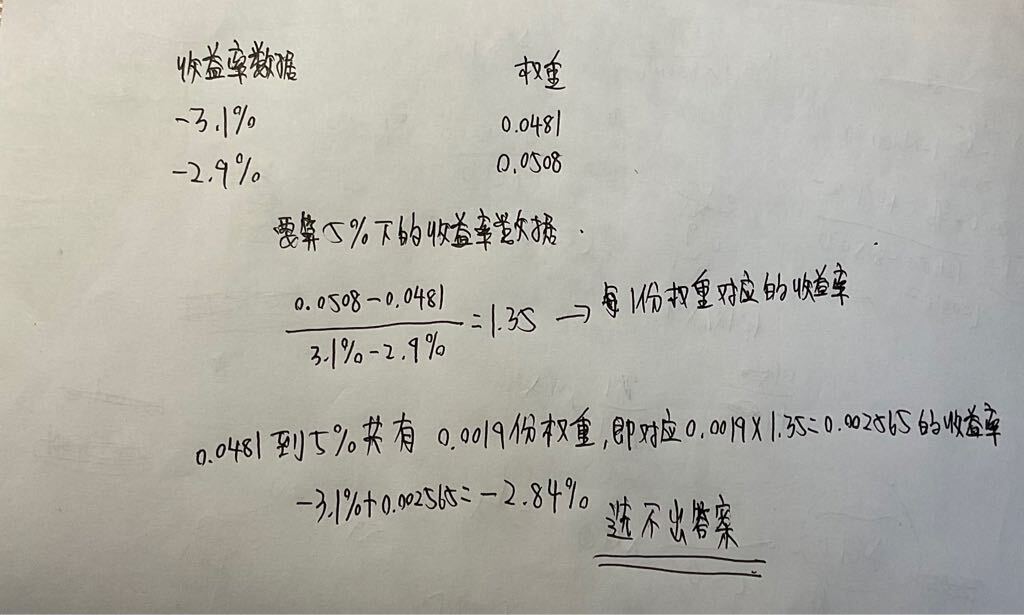 收益率数据 权重
-3.1% 0.0481
-2.9% 0.0508
要算5%下的收益率数据.
0.0508-0.0481
3.1%-2.9%
=1.35 → 每1份权重对应的收益率
0.0481到5%共有0.0019份权重,即对应0.0019×1.35=0.002565的收益率
-3.1%+0.002565=-2.84%
选不出答案